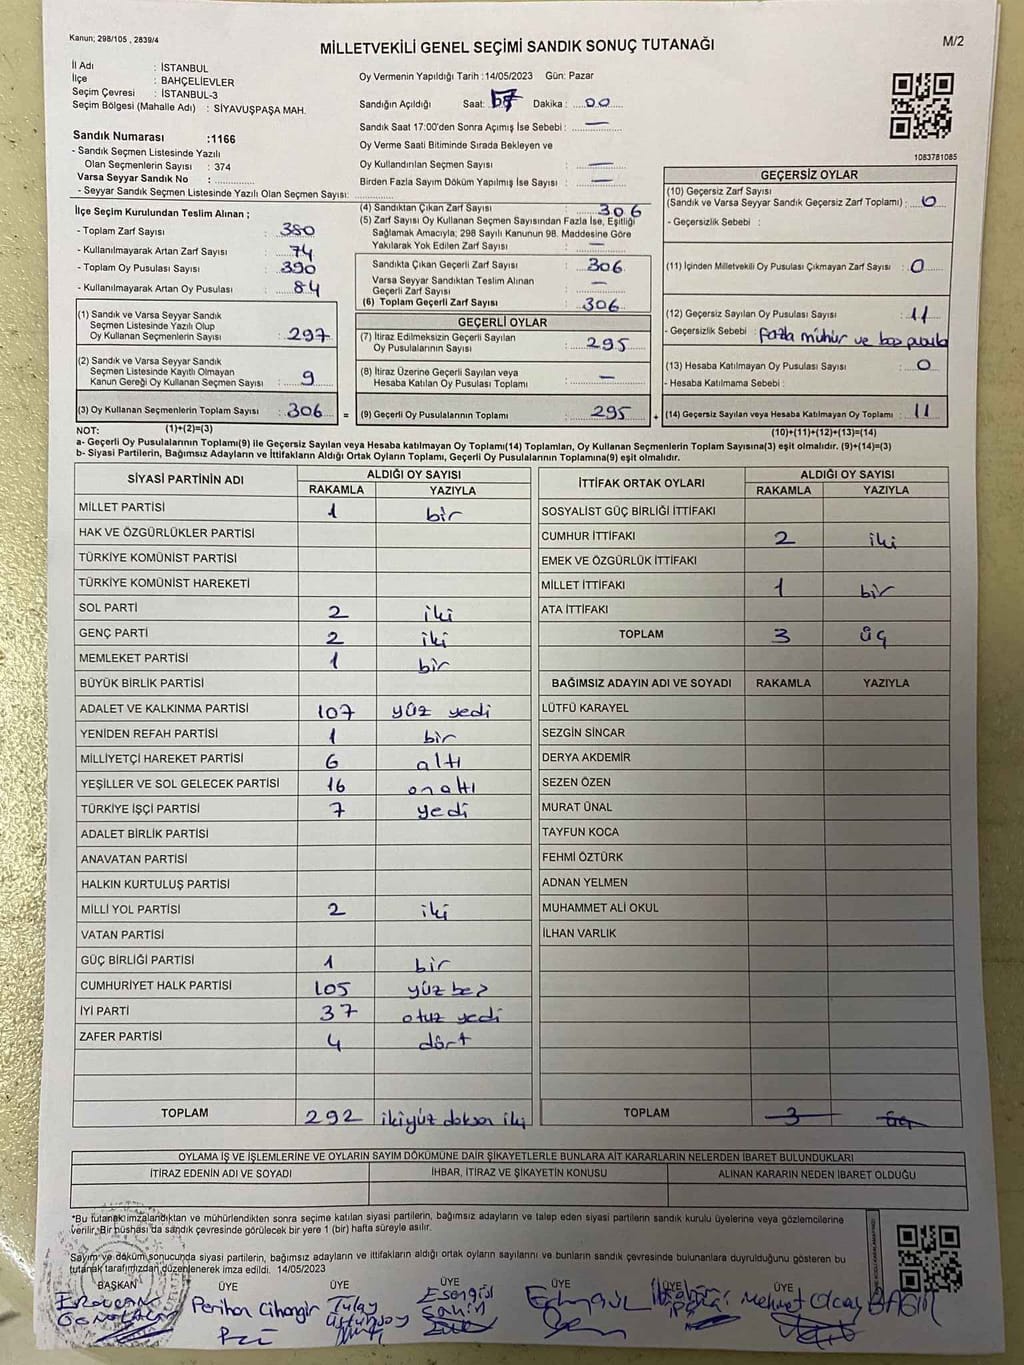 Kanun; 298/105 , 2839/4
M/2
MİLLETVEKİLİ GENEL SEÇİMİ SANDIK SONUÇ TUTANAĞI
İl Adı : İSTANBUL
İlçe : BAHÇELİEVLER
Seçim Çevresi : İSTANBUL-3
Seçim Bölgesi (Mahalle Adı) : SİYAVUŞPAŞA MAH.
Sandık Numarası :1166
- Sandık Seçmen Listesinde Yazılı
Olan Seçmenlerin Sayısı : 374
Varsa Seyyar Sandık No :
- Seyyar Sandık Seçmen Listesinde Yazılı Olan Seçmen Sayısı:
Oy Vermenin Yapıldığı Tarih :14/05/2023 Gün: Pazar
Sandığın Açıldığı Saat: Dakika : 00
Sandık Saat 17:00'den Sonra Açımış İse Sebebi : —
Oy Verme Saati Bitiminde Sırada Bekleyen ve
Oy Kullandırılan Seçmen Sayısı : —
Birden Fazla Sayım Döküm Yapılmış İse Sayısı : —
1083781085
İlçe Seçim Kurulundan Teslim Alınan ;
- Toplam Zarf Sayısı : 380
- Kullanılmayarak Artan Zarf Sayısı : 74
- Toplam Oy Pusulası Sayısı : 390
- Kullanılmayarak Artan Oy Pusulası : 84
(1) Sandık ve Varsa Seyyar Sandık
Seçmen Listesinde Yazılı Olup
Oy Kullanan Seçmenlerin Sayısı : 297
(2) Sandık ve Varsa Seyyar Sandık
Seçmen Listesinde Kayıtlı Olmayan
Kanun Gereği Oy Kullanan Seçmen Sayısı : 9
(3) Oy Kullanan Seçmenlerin Toplam Sayısı : 306 =
(4) Sandıktan Çıkan Zarf Sayısı : 306
(5) Zarf Sayısı Oy Kullanan Seçmen Sayısından Fazla İse, Eşitliği
Sağlamak Amacıyla; 298 Sayılı Kanunun 98. Maddesine Göre
Yakılarak Yok Edilen Zarf Sayısı : —
Sandıkta Çıkan Geçerli Zarf Sayısı : 306
Varsa Seyyar Sandıktan Teslim Alınan
Geçerli Zarf Sayısı : —
(6) Toplam Geçerli Zarf Sayısı : 306
GEÇERLİ OYLAR
(7) İtiraz Edilmeksizin Geçerli Sayılan
Oy Pusulalarının Sayısı : 295
(8) İtiraz Üzerine Geçerli Sayılan veya
Hesaba Katılan Oy Pusulası Toplamı : —
(9) Geçerli Oy Pusulalarının Toplamı : 295 +
GEÇERSİZ OYLAR
(10) Geçersiz Zarf Sayısı
(Sandık ve Varsa Seyyar Sandık Geçersiz Zarf Toplamı) : 0
- Geçersizlik Sebebi :
(11) İçinden Milletvekili Oy Pusulası Çıkmayan Zarf Sayısı : 0
(12) Geçersiz Sayılan Oy Pusulası Sayısı : 11
- Geçersizlik Sebebi : fazla mühür ve boş pusula
(13) Hesaba Katılmayan Oy Pusulası Sayısı : 0
- Hesaba Katılmama Sebebi :
(14) Geçersiz Sayılan veya Hesaba Katılmayan Oy Toplamı : 11
NOT: (1)+(2)=(3) (10)+(11)+(12)+(13)=(14)
a- Geçerli Oy Pusulalarının Toplamı(9) ile Geçersiz Sayılan veya Hesaba katılmayan Oy Toplamı(14) Toplamları, Oy Kullanan Seçmenlerin Toplam Sayısına(3) eşit olmalıdır. (9)+(14)=(3)
b- Siyasi Partilerin, Bağımsız Adayların ve İttifakların Aldığı Ortak Oyların Toplamı, Geçerli Oy Pusulalarının Toplamına(9) eşit olmalıdır.
SİYASİ PARTİNİN ADI ALDIĞI OY SAYISI
RAKAMLA YAZIYLA
MİLLET PARTİSİ 1 bir
HAK VE ÖZGÜRLÜKLER PARTİSİ
TÜRKİYE KOMÜNİST PARTİSİ
TÜRKİYE KOMÜNİST HAREKETİ
SOL PARTİ 2 iki
GENÇ PARTİ 2 iki
MEMLEKET PARTİSİ 1 bir
BÜYÜK BİRLİK PARTİSİ
ADALET VE KALKINMA PARTİSİ 107 yüz yedi
YENİDEN REFAH PARTİSİ 1 bir
MİLLİYETÇİ HAREKET PARTİSİ 6 altı
YEŞİLLER VE SOL GELECEK PARTİSİ 16 onaltı
TÜRKİYE İŞÇİ PARTİSİ 7 yedi
ADALET BİRLİK PARTİSİ
ANAVATAN PARTİSİ
HALKIN KURTULUŞ PARTİSİ
MİLLİ YOL PARTİSİ 2 iki
VATAN PARTİSİ
GÜÇ BİRLİĞİ PARTİSİ 1 bir
CUMHURİYET HALK PARTİSİ 105 yüz beş
İYİ PARTİ 37 otuz yedi
ZAFER PARTİSİ 4 dört
TOPLAM 292 ikiyüz doksan iki
İTTİFAK ORTAK OYLARI ALDIĞI OY SAYISI
RAKAMLA YAZIYLA
SOSYALİST GÜÇ BİRLİĞİ İTTİFAKI
CUMHUR İTTİFAKI 2 iki
EMEK VE ÖZGÜRLÜK İTTİFAKI
MİLLET İTTİFAKI 1 bir
ATA İTTİFAKI
TOPLAM 3 üç
BAĞIMSIZ ADAYIN ADI VE SOYADI RAKAMLA YAZIYLA
LÜTFÜ KARAYEL
SEZGİN SİNCAR
DERYA AKDEMİR
SEZEN ÖZEN
MURAT ÜNAL
TAYFUN KOCA
FEHMİ ÖZTÜRK
ADNAN YELMEN
MUHAMMET ALİ OKUL
İLHAN VARLIK
TOPLAM 3 üç
OYLAMA İŞ VE İŞLEMLERİNE VE OYLARIN SAYIM DÖKÜMÜNE DAİR ŞİKAYETLERLE BUNLARA AİT KARARLARIN NELERDEN İBARET BULUNDUKLARI
İTİRAZ EDENİN ADI VE SOYADI İHBAR, İTİRAZ VE ŞİKAYETİN KONUSU ALINAN KARARIN NEDEN İBARET OLDUĞU
*Bu tutanak imzalandıktan ve mühürlendikten sonra seçime katılan siyasi partilerin, bağımsız adayların ve talep eden siyasi partilerin sandık kurulu üyelerine veya gözlemcilerine
verilir. Bir nüshası da sandık çevresinde görülecek bir yere 1 (bir) hafta süreyle asılır.
Sayım ve döküm sonucunda siyasi partilerin, bağımsız adayların ve ittifakların aldığı ortak oyların sayılarını ve bunların sandık çevresinde bulunanlara duyrulduğunu gösteren bu
tutanak tarafımızdan düzenlenerek imza edildi. 14/05/2023
BAŞKAN ÜYE ÜYE ÜYE ÜYE ÜYE
Perihan Cihangir Tülay Esengül Şahin Mehmet Olcay